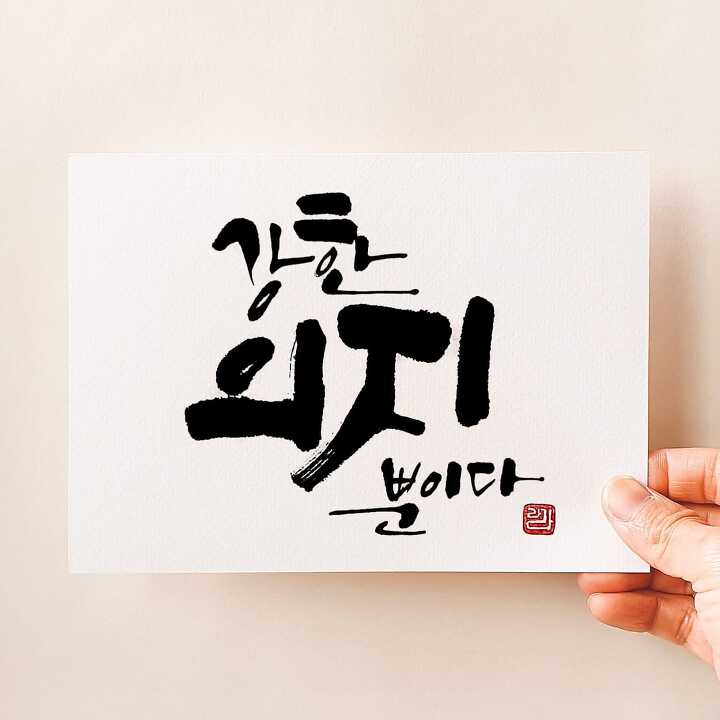 강한
의지
뿐이다